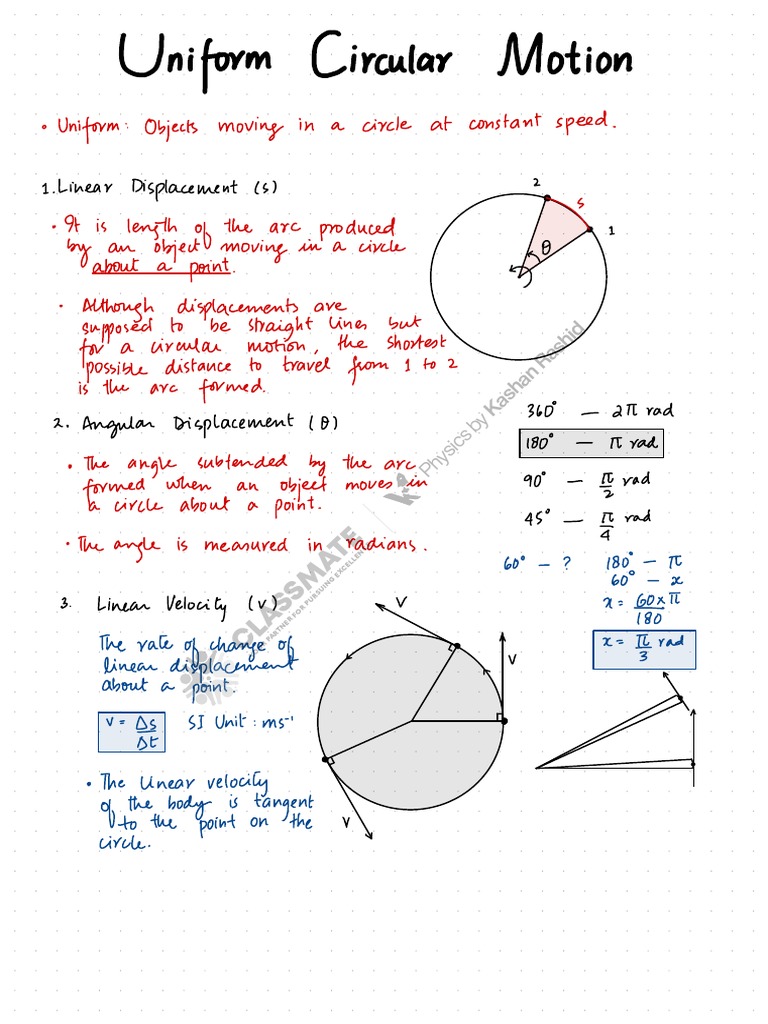 Uniform Circular Motion
• Uniform: Objects moving in a circle at constant speed.
1. Linear Displacement (s)
• It is length of the arc produced
by an object moving in a circle
about a point.
• Although displacements are
supposed to be straight lines but
for a circular motion, the shortest
possible distance to travel from 1 to 2
is the arc formed.
2
s
1
θ
2. Angular Displacement (θ)
• The angle subtended by the arc
formed when an object moves in
a circle about a point.
• The angle is measured in radians.
360° — 2π rad
180° — π rad
90° — π/2 rad
45° — π/4 rad
60° — ? 180° — π
60° — x
x = 60×π/180
x = π/3 rad
3. Linear Velocity (v)
The rate of change of
linear displacement
about a point.
v = Δs/Δt SI Unit: ms⁻¹
• The linear velocity
of the body is tangent
to the point on the
circle.
v
v
v
Physics by Kashan Rashid
CLASSMATE
PARTNER FOR PURSUING EXCELLEN